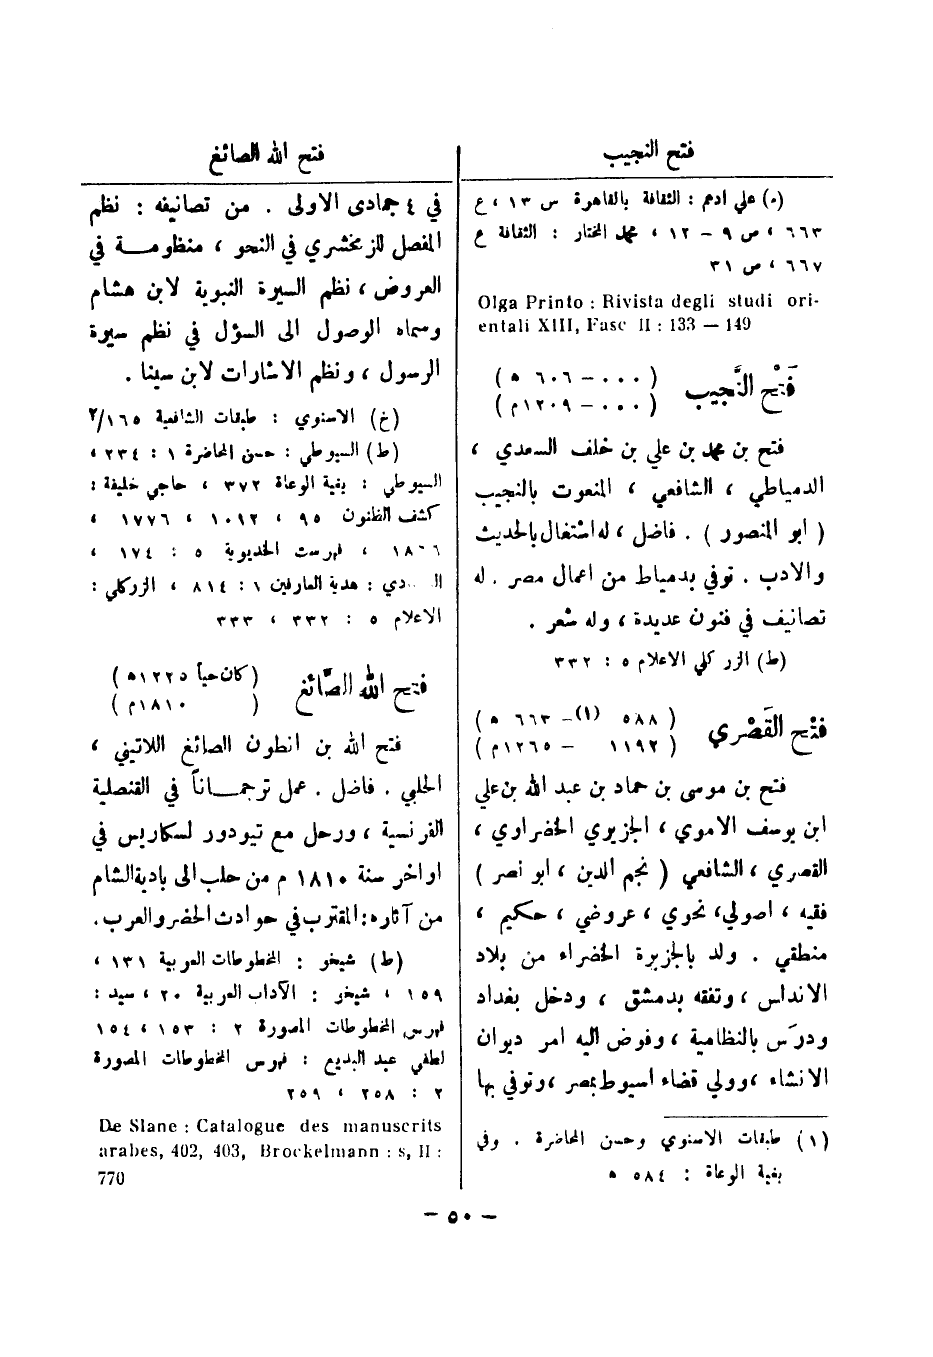 فتح النجيب
(م) علي ادم : الثقافة بالقاهرة س ١٣ ، ع
٦٦٣ ، ص ٩ – ١٢ ، محمد المختار : الثقافة ع
٦٦٧ ، ص ٣١
Olga Printo : Rivista degli studi ori-
entali XIII, Fasc II : 133 — 149
فَتْح النَّجيب
( ٠٠٠ – ٦٠٦ ه )
( ٠٠٠ – ١٢٠٩م )
فتح بن محمد بن علي بن خلف السعدي ،
الدمياطي ، الشافعي ، المنعوت بالنجيب
( ابو المنصور ) . فاضل ، له اشتغال بالحديث
والادب . توفي بدمياط من اعمال مصر . له
تصانيف في فنون عديدة ، وله شعر .
(ط) الزركلي الاعلام ٥ : ٣٣٢
فتْح القَصْري
( ٥٨٨ (١) – ٦٦٣ ه )
( ١١٩٢ – ١٢٦٥م )
فتح بن موسى بن حماد بن عبد الله بن علي
ابن يوسف الاموي ، الجزيري الخضراوي ،
القصري ، الشافعي ( نجم الدين ، ابو نصر )
فقيه ، اصولي ، نحوي ، عروضي ، حكيم ،
منطقي . ولد بالجزيرة الخضراء من بلاد
الاندلس ، وتفقه بدمشق ، ودخل بغداد
ودرّس بالنظامية ، وفوض اليه امر ديوان
الانشاء ، وولي قضاء اسيوط بمصر ، وتوفي بها
(١) طبقات الاسنوي وحسن المحاضرة . وفي
بغية الوعاة : ٥٨٤ ه
فتح الله الصائغ
في ٤ جمادى الاولى . من تصانيفه : نظم
المفصل للزمخشري في النحو ، منظومة في
العروض ، نظم السيرة النبوية لابن هشام
وسماه الوصول الى السؤل في نظم سيرة
الرسول ، ونظم الاشارات لابن سينا .
(خ) الاسنوي : طبقات الشافعية ١٦٥/٢
(ط) السيوطي : حسن المحاضرة ١ : ٢٣٤ ،
السيوطي : بغية الوعاة ٣٧٢ ، حاجي خليفة :
كشف الظنون ٩٥ ، ١٠١٢ ، ١٧٧٦ ،
، فهرست الخديوية ٥ : ١٧٤ ،
: هدية العارفين ١ : ٨١٤ ، الزركلي :
الاعلام ٥ : ٣٣٢ ، ٣٣٣
فتح الله الصَّائغ
( كان حياً ١٢٢٥ه )
( ١٨١٠م )
فتح الله بن انطون الصائغ اللاتيني ،
الحلبي . فاضل . عمل ترجمـاناً في القنصلية
الفرنسية ، ورحل مع تيودور لسكاريس في
اواخر سنة ١٨١٠ م من حلب الى بادية الشام
من آثاره : المقترب في حوادث الحضر والعرب .
(ط) شيخو : المخطوطات العربية ١٣١ ،
١٥٩ ، شيخو : الآداب العربية ٢٠ ، سيد :
فهرس المخطوطات المصورة ٢ : ١٥٣ ، ١٥٤
لطفي عبد البديع : فهرس المخطوطات المصورة
٢ : ٢٥٨ ، ٢٥٩
De Slane : Catalogue des manuscrits
arabes, 402, 403, Brockelmann : s, II :
770
– ٥٠ –